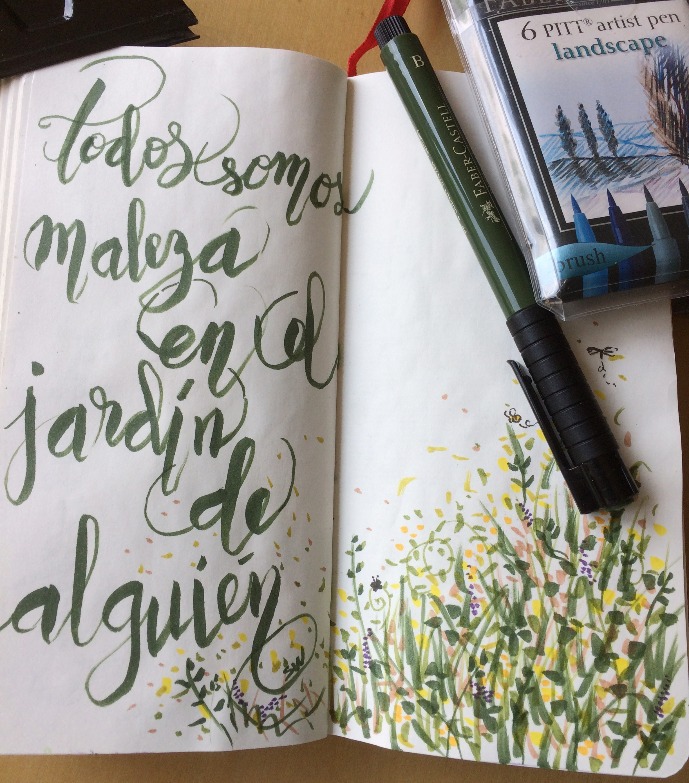 Todos somos
maleza
en el
jardín
de
alguién
B
FABER-CASTELL
6 PITT® artist pen
landscape
brush